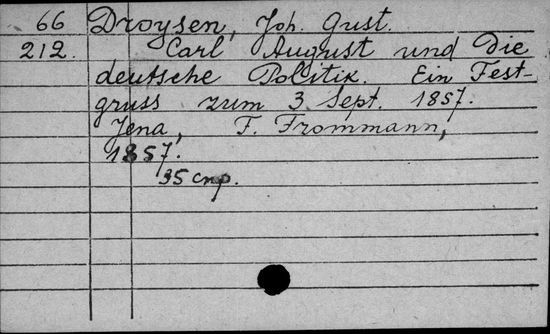 66 Droysen, Joh. Gust.
212. Carl August und die
deutsche Politik. Ein Fest-
gruss zum 3 Sept. 1857.
Jena, F. Frommann,
1857.
35 стр.